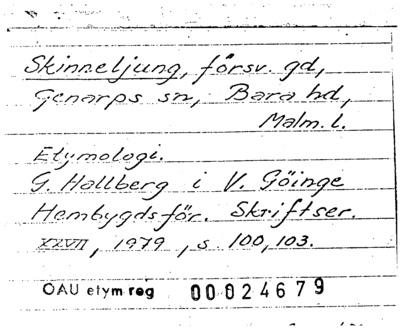 Skinneljung, försv. gd,
Genarps sn, Bara hd,
Malm. l.
Etymologi.
G. Hallberg i V. Göinge
Hembygdsför. Skriftser.
XXVII, 1979, s. 100, 103.
OAU etym reg 00024679